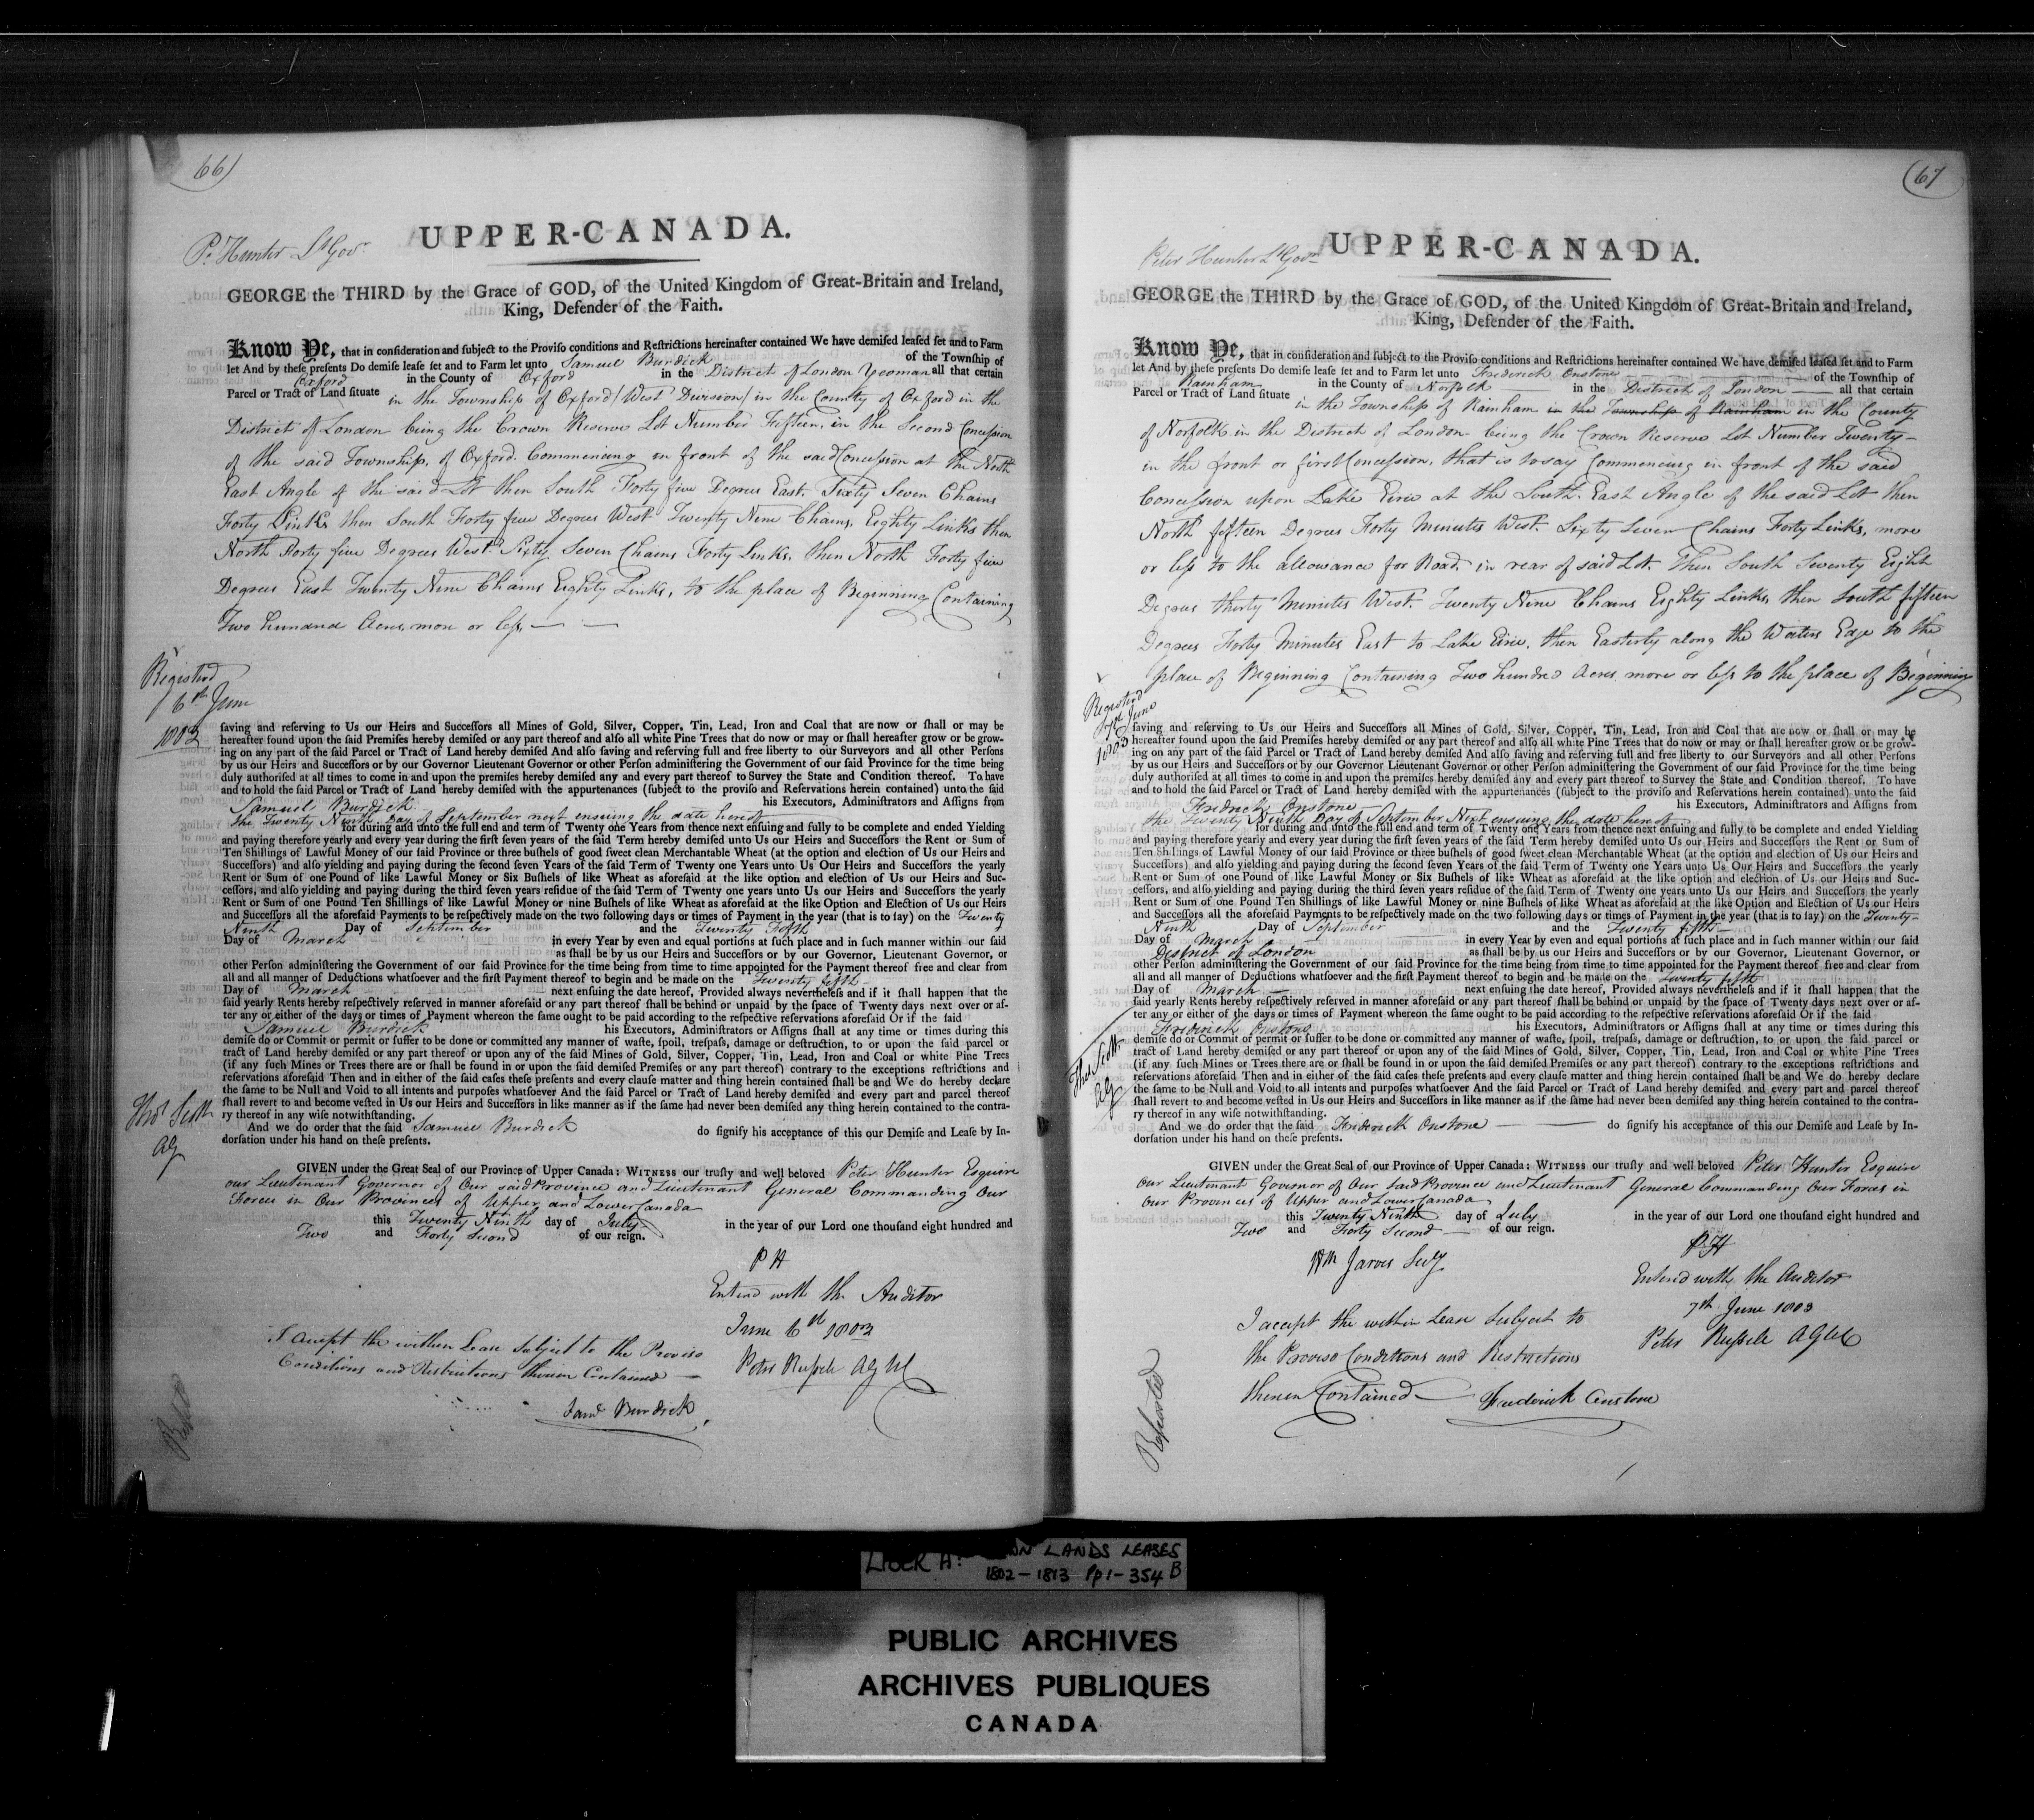 66)
UPPER-CANADA.
P. Hunter Lt Govr
GEORGE the THIRD by the Grace of GOD, of the United Kingdom of Great-Britain and Ireland,
King, Defender of the Faith.
Know Ye, that in consideration and subject to the Proviso conditions and Restrictions hereinafter contained We have demised leased set and to Farm
let And by these presents Do demise lease set and to Farm let unto Samuel Burdick of the Township of
Oxford in the County of Oxford in the District of London Yeoman all that certain
Parcel or Tract of Land situate in the Township of Oxford (West Division) in the County of Oxford in the
District of London being the Crown Reserve Lot Number Fifteen, in the Second Concession
of the said Township, of Oxford. Commencing in front of the said Concession at the North
East Angle of the said Lot then South Forty five Degrees East. Sixty Seven Chains
Forty Links, then South Forty five Degrees West Twenty Nine Chains, Eighty Links then
North Forty five Degrees West. Sixty Seven Chains Forty Links, then North Forty five
Degrees East Twenty Nine Chains Eighty Links, to the place of Beginning Containing
Two hundred Acres, more or less, — —
Registerd
6th June
1803
saving and reserving to Us our Heirs and Successors all Mines of Gold, Silver, Copper, Tin, Lead, Iron and Coal that are now or shall or may be
hereafter found upon the said Premises hereby demised or any part thereof and also all white Pine Trees that do now or may or shall hereafter grow or be grow-
ing on any part of the said Parcel or Tract of Land hereby demised And also saving and reserving full and free liberty to our Surveyors and all other Persons
by us our Heirs and Successors or by our Governor Lieutenant Governor or other Person administering the Government of our said Province for the time being
duly authorised at all times to come in and upon the premises hereby demised any and every part thereof to Survey the State and Condition thereof. To have
and to hold the said Parcel or Tract of Land hereby demised with the appurtenances (subject to the proviso and Reservations herein contained) unto the said
Samuel Burdick his Executors, Administrators and Assigns from
the Twenty Ninth Day of September next ensuing the date hereof
for during and unto the full end and term of Twenty one Years from thence next ensuing and fully to be complete and ended Yielding
and paying therefore yearly and every year during the first seven years of the said Term hereby demised unto Us our Heirs and Successors the Rent or Sum of
Ten Shillings of Lawful Money of our said Province or three bushels of good sweet clean Merchantable Wheat (at the option and election of Us our Heirs and
Successors) and also yielding and paying during the second seven Years of the said Term of Twenty one Years unto Us Our Heirs and Successors the yearly
Rent or Sum of one Pound of like Lawful Money or Six Bushels of like Wheat as aforesaid at the like option and election of Us our Heirs and Suc-
cessors, and also yielding and paying during the third seven years residue of the said Term of Twenty one years unto Us our Heirs and Successors the yearly
Rent or Sum of one Pound Ten Shillings of like Lawful Money or nine Bushels of like Wheat as aforesaid at the like Option and Election of Us our Heirs
and Successors all the aforesaid Payments to be respectively made on the two following days or times of Payment in the year (that is to say) on the Twenty
Ninth Day of September and the Twenty Fifth
Day of March in every Year by even and equal portions at such place and in such manner within our said
as shall be by us our Heirs and Successors or by our Governor, Lieutenant Governor, or
other Person administering the Government of our said Province for the time being from time to time appointed for the Payment thereof free and clear from
all and all manner of Deductions whatsoever and the first Payment thereof to begin and be made on the Twenty fifth
Day of March next ensuing the date hereof, Provided always nevertheless and if it shall happen that the
said yearly Rents hereby respectively reserved in manner aforesaid or any part thereof shall be behind or unpaid by the space of Twenty days next over or af-
ter any or either of the days or times of Payment whereon the same ought to be paid according to the respective reservations aforesaid Or if the said
Samuel Burdick his Executors, Administrators or Assigns shall at any time or times during this
demise do or Commit or permit or suffer to be done or committed any manner of waste, spoil, trespass, damage or destruction, to or upon the said parcel or
tract of Land hereby demised or any part thereof or upon any of the said Mines of Gold, Silver, Copper, Tin, Lead, Iron and Coal or white Pine Trees
(if any such Mines or Trees there are or shall be found in or upon the said demised Premises or any part thereof) contrary to the exceptions restrictions and
reservations aforesaid Then and in either of the said cases these presents and every clause matter and thing herein contained shall be and We do hereby declare
the same to be Null and Void to all intents and purposes whatsoever And the said Parcel or Tract of Land hereby demised and every part and parcel thereof
shall revert to and become vested in Us our Heirs and Successors in like manner as if the same had never been demised any thing herein contained to the contra-
ry thereof in any wise notwithstanding.
Thos Scott
AG
And we do order that the said Samuel Burdick do signify his acceptance of this our Demise and Lease by In-
dorsation under his hand on these presents.
GIVEN under the Great Seal of our Province of Upper Canada: WITNESS our trusty and well beloved Peter Hunter Esquire
our Lieutenant Governor of Our said Province and Lieutenant General Commanding Our
Forces in Our Provinces of Upper and Lower Canada
this Twenty Ninth day of July in the year of our Lord one thousand eight hundred and
Two and Forty Second of our reign.
P H
Enterd with the Auditor
June 6th 1803
Peter Russell AG UC
I accept the within Lease Subject to the Proviso
Conditions and Restrictions therein Contained —
Saml Burdick
(67
UPPER-CANADA.
Peter Hunter Lt Govr
GEORGE the THIRD by the Grace of GOD, of the United Kingdom of Great-Britain and Ireland,
King, Defender of the Faith.
Know Ye, that in consideration and subject to the Proviso conditions and Restrictions hereinafter contained We have demised leased set and to Farm
let And by these presents Do demise lease set and to Farm let unto Frederick Onstone of the Township of
Rainham in the County of Norfolk in the District of London all that certain
Parcel or Tract of Land situate in the Township of Rainham in the Township of Rainham in the County
of Norfolk in the District of London being the Crown Reserve Lot Number Twenty-
in the front or first Concession, that is to say Commencing in front of the said
Concession upon Lake Eirie at the South. East Angle of the said Lot then
North fifteen Degrees Forty Minutes West. Sixty Seven Chains Forty Links, more
or less to the allowance for Road, in rear of said Lot. Then South Seventy Eight
Degrees thirty Minutes West. Twenty Nine Chains Eighty Links, then South fifteen
Degrees Forty Minutes East to Lake Eirie, then Easterly along the Waters Edge to the
place of Beginning Containing Two hundred Acres more or less to the place of Beginning
Registerd
7th June
1803
saving and reserving to Us our Heirs and Successors all Mines of Gold, Silver, Copper, Tin, Lead, Iron and Coal that are now or shall or may be
hereafter found upon the said Premises hereby demised or any part thereof and also all white Pine Trees that do now or may or shall hereafter grow or be grow-
ing on any part of the said Parcel or Tract of Land hereby demised And also saving and reserving full and free liberty to our Surveyors and all other Persons
by us our Heirs and Successors or by our Governor Lieutenant Governor or other Person administering the Government of our said Province for the time being
duly authorised at all times to come in and upon the premises hereby demised any and every part thereof to Survey the State and Condition thereof. To have
and to hold the said Parcel or Tract of Land hereby demised with the appurtenances (subject to the proviso and Reservations herein contained) unto the said
Fredrick Onstone his Executors, Administrators and Assigns from
the Twenty Ninth Day of September Next ensuing the date hereof
for during and unto the full end and term of Twenty one Years from thence next ensuing and fully to be complete and ended Yielding
and paying therefore yearly and every year during the first seven years of the said Term hereby demised unto Us our Heirs and Successors the Rent or Sum of
Ten Shillings of Lawful Money of our said Province or three bushels of good sweet clean Merchantable Wheat (at the option and election of Us our Heirs and
Successors) and also yielding and paying during the second seven Years of the said Term of Twenty one Years unto Us Our Heirs and Successors the yearly
Rent or Sum of one Pound of like Lawful Money or Six Bushels of like Wheat as aforesaid at the like option and election of Us our Heirs and Suc-
cessors, and also yielding and paying during the third seven years residue of the said Term of Twenty one years unto Us our Heirs and Successors the yearly
Rent or Sum of one Pound Ten Shillings of like Lawful Money or nine Bushels of like Wheat as aforesaid at the like Option and Election of Us our Heirs
and Successors all the aforesaid Payments to be respectively made on the two following days or times of Payment in the year (that is to say) on the Twenty-
Ninth Day of September and the Twenty fifth
Day of March in every Year by even and equal portions at such place and in such manner within our said
District of London as shall be by us our Heirs and Successors or by our Governor, Lieutenant Governor, or
other Person administering the Government of our said Province for the time being from time to time appointed for the Payment thereof free and clear from
all and all manner of Deductions whatsoever and the first Payment thereof to begin and be made on the Twenty fifth
Day of March next ensuing the date hereof, Provided always nevertheless and if it shall happen that the
said yearly Rents hereby respectively reserved in manner aforesaid or any part thereof shall be behind or unpaid by the space of Twenty days next over or af-
ter any or either of the days or times of Payment whereon the same ought to be paid according to the respective reservations aforesaid Or if the said
Frederick Onstone his Executors, Administrators or Assigns shall at any time or times during this
demise do or Commit or permit or suffer to be done or committed any manner of waste, spoil, trespass, damage or destruction, to or upon the said parcel or
tract of Land hereby demised or any part thereof or upon any of the said Mines of Gold, Silver, Copper, Tin, Lead, Iron and Coal or white Pine Trees
(if any such Mines or Trees there are or shall be found in or upon the said demised Premises or any part thereof) contrary to the exceptions restrictions and
reservations aforesaid Then and in either of the said cases these presents and every clause matter and thing herein contained shall be and We do hereby declare
the same to be Null and Void to all intents and purposes whatsoever And the said Parcel or Tract of Land hereby demised and every part and parcel thereof
shall revert to and become vested in Us our Heirs and Successors in like manner as if the same had never been demised any thing herein contained to the contra-
ry thereof in any wise notwithstanding.
Thos Scott
AG
And we do order that the said Frederick Onstone do signify his acceptance of this our Demise and Lease by In-
dorsation under his hand on these presents.
GIVEN under the Great Seal of our Province of Upper Canada: WITNESS our trusty and well beloved Peter Hunter Esquire
Our Lieutenant Governor of Our Said Province and Lieutenant General Commanding Our Forces in
our Provinces of Upper and Lower Canada
this Twenty Ninth day of July in the year of our Lord one thousand eight hundred and
Two and Forty Second of our reign.
P.H
Wm Jarvis Secy
Enterd with the Auditor
7th June 1803
Peter Russell AG UC
I accept the within Lease Subject to
the Proviso Conditions and Restrictions
therein Contained — Frederick Onstone
Reported
LIBER A: LANDS LEASES
1802-1813 Pp 1-354 B
PUBLIC ARCHIVES
ARCHIVES PUBLIQUES
CANADA